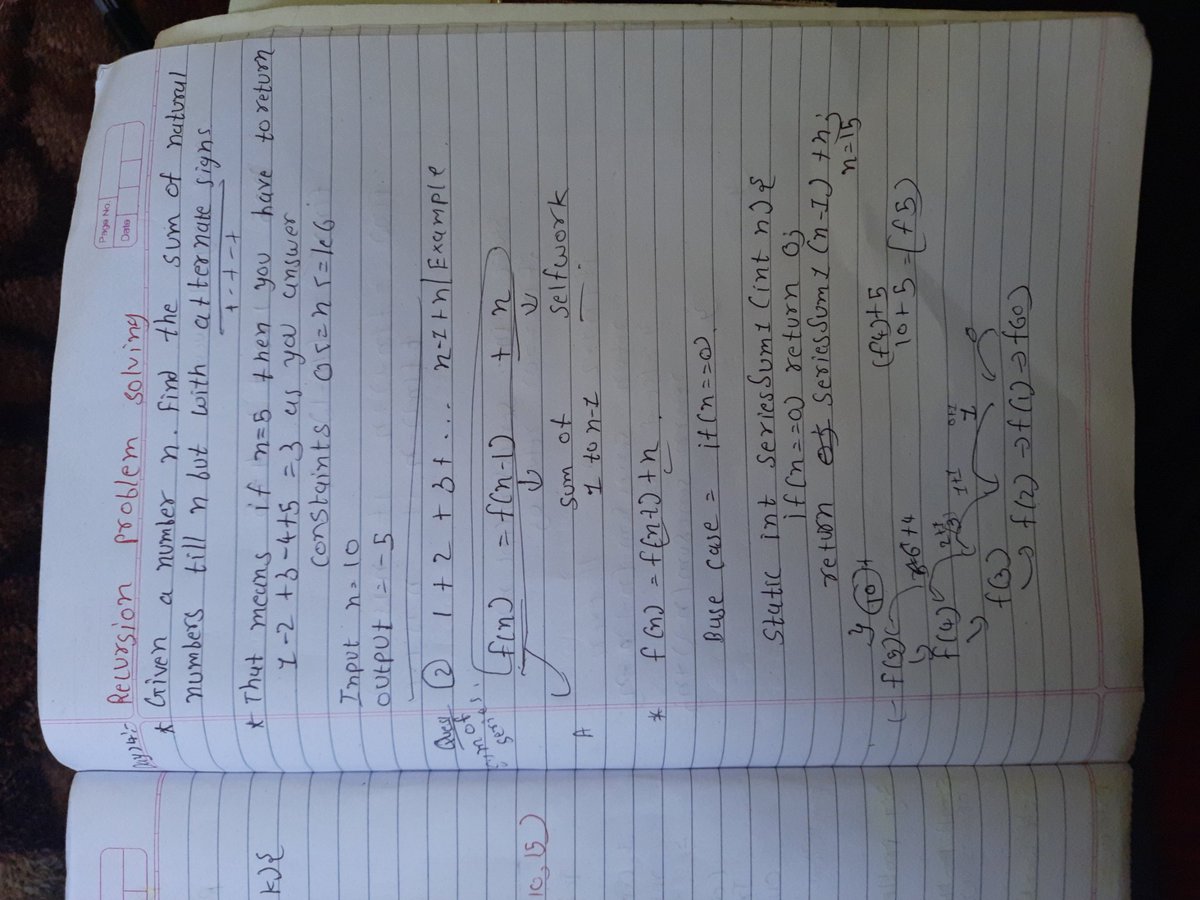 Page No.
Date
Day 14:- Recursion problem solving
* Given a number n. Find the sum of natural
numbers till n but with alternate signs
+ - + - +
* That means if n=5 then you have to return
1 - 2 + 3 - 4 + 5 = 3 as you answer
constaints 0<= n <= 1e6
Input n = 10
output = -5
Ques 2 1 + 2 + 3 + ... n-1 + n | Example
sum of series
f(n) = f(n-1) + n
sum of selfwork
1 to n-1
A
* f(n) = f(n-1) + n
Base case = if(n==0)
Static int seriesSum1 (int n) {
if(n==0) return 0;
return seriesSum1 (n-1) + n;
} n=15
10
f(5) (f4)+5
6+4 10+5 = [f5)
f(4)
1+1 0+1
1
f(3)
→ f(2) → f(1) → f(0)
k) {
10, 15)